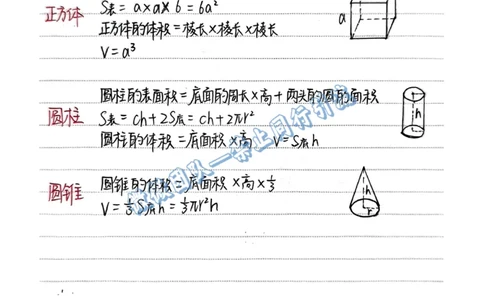 正方体 S表 = a×a×6 = 6a²
正方体的体积 = 棱长×棱长×棱长
V = a³
a
圆柱的表面积 = 底面的周长×高 + 两头的圆的面积
圆柱 S表 = ch + 2S底 = ch + 2πr²
圆柱的体积 = 底面积×高 V = S底h
h
圆锥 圆锥的体积 = 底面积×高×⅓
V = ⅓S底h = ⅓πr²h
h
r